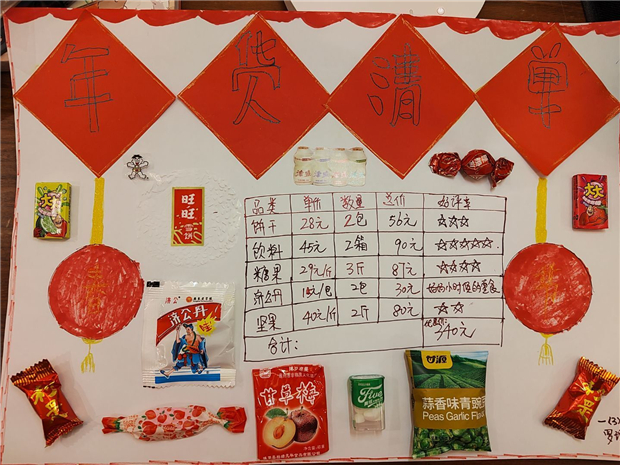 年货清单
品类 单价 数量 总价 好评率
饼干 28元 2包 56元 ☆☆☆
饮料 45元 2箱 90元 ☆☆☆☆☆
糖果 29元/斤 3斤 87元 ☆☆☆☆
济公丹 15元/包 2包 30元 妈妈小时候的零食
坚果 40元/斤 2斤 80元 ☆☆
合计: 340元
旺旺
雪饼
济公丹
甘草梅
Five
甘源
蒜香味青豌豆
Peas Garlic Flavor